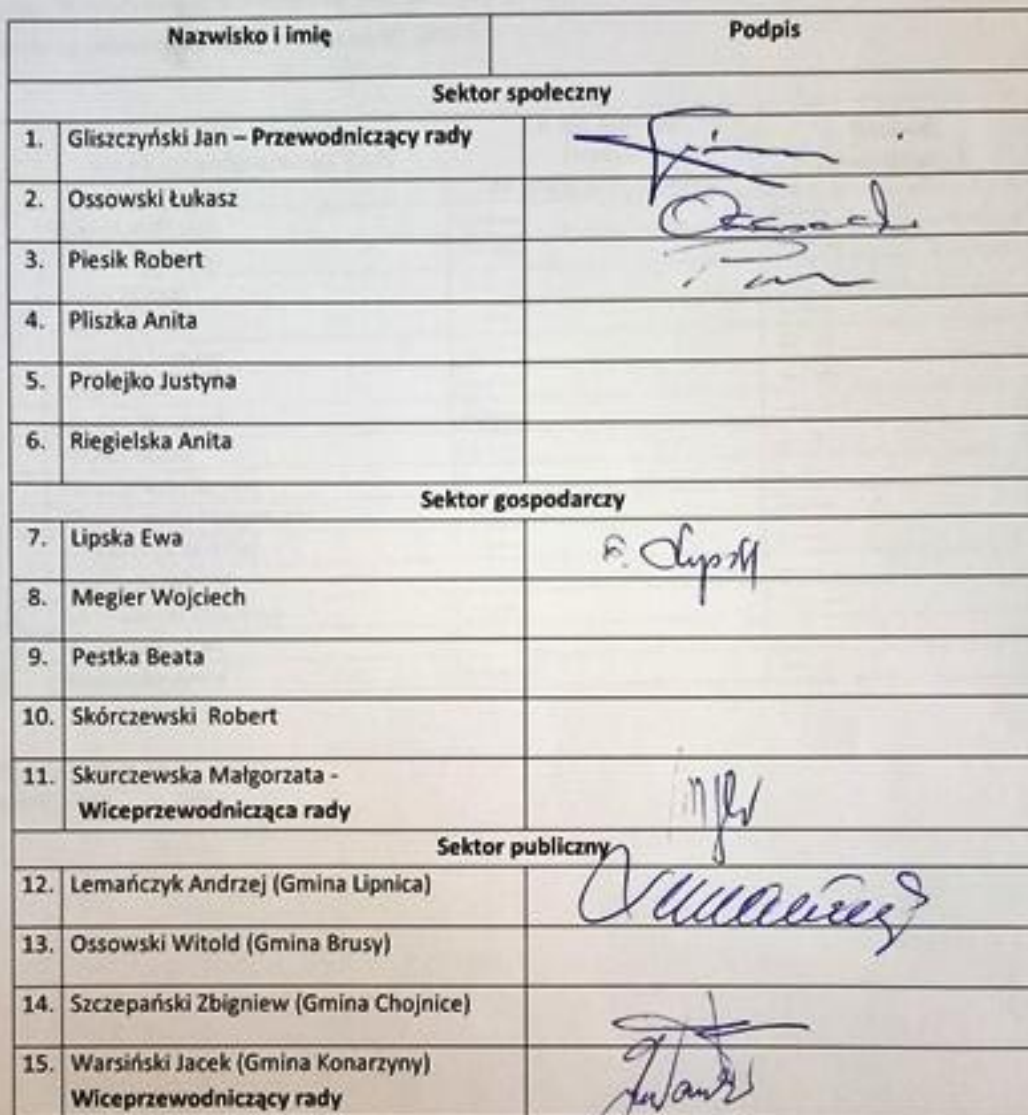 Nazwisko i imię Podpis
Sektor społeczny
1. Gliszczyński Jan – Przewodniczący rady
2. Ossowski Łukasz
3. Piesik Robert
4. Pliszka Anita
5. Prolejko Justyna
6. Riegielska Anita
Sektor gospodarczy
7. Lipska Ewa
8. Megier Wojciech
9. Pestka Beata
10. Skórczewski Robert
11. Skurczewska Małgorzata -
Wiceprzewodnicząca rady
Sektor publiczny
12. Lemańczyk Andrzej (Gmina Lipnica)
13. Ossowski Witold (Gmina Brusy)
14. Szczepański Zbigniew (Gmina Chojnice)
15. Warsiński Jacek (Gmina Konarzyny)
Wiceprzewodniczący rady